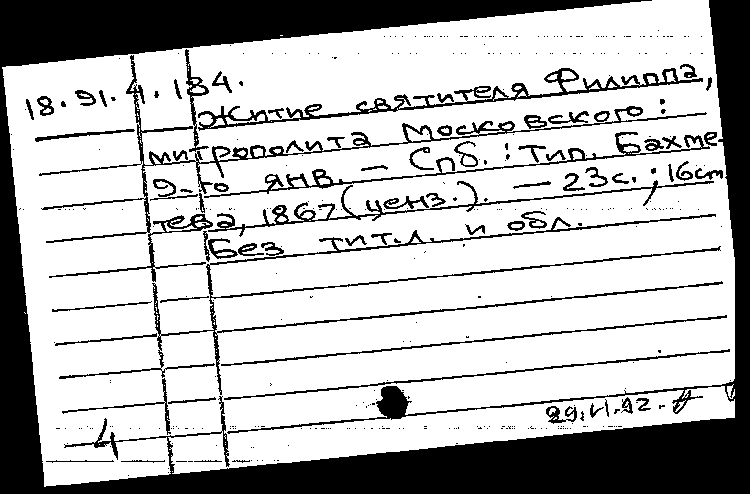 18.91.4.184.
Житие святителя Филиппа,
митрополита Московского:
9-го янв. — Спб.: Тип. Бахме-
тева, 1867 (ценз.). — 23с.; 16см.
Без тит.л. и обл.
4
29.VI.92.